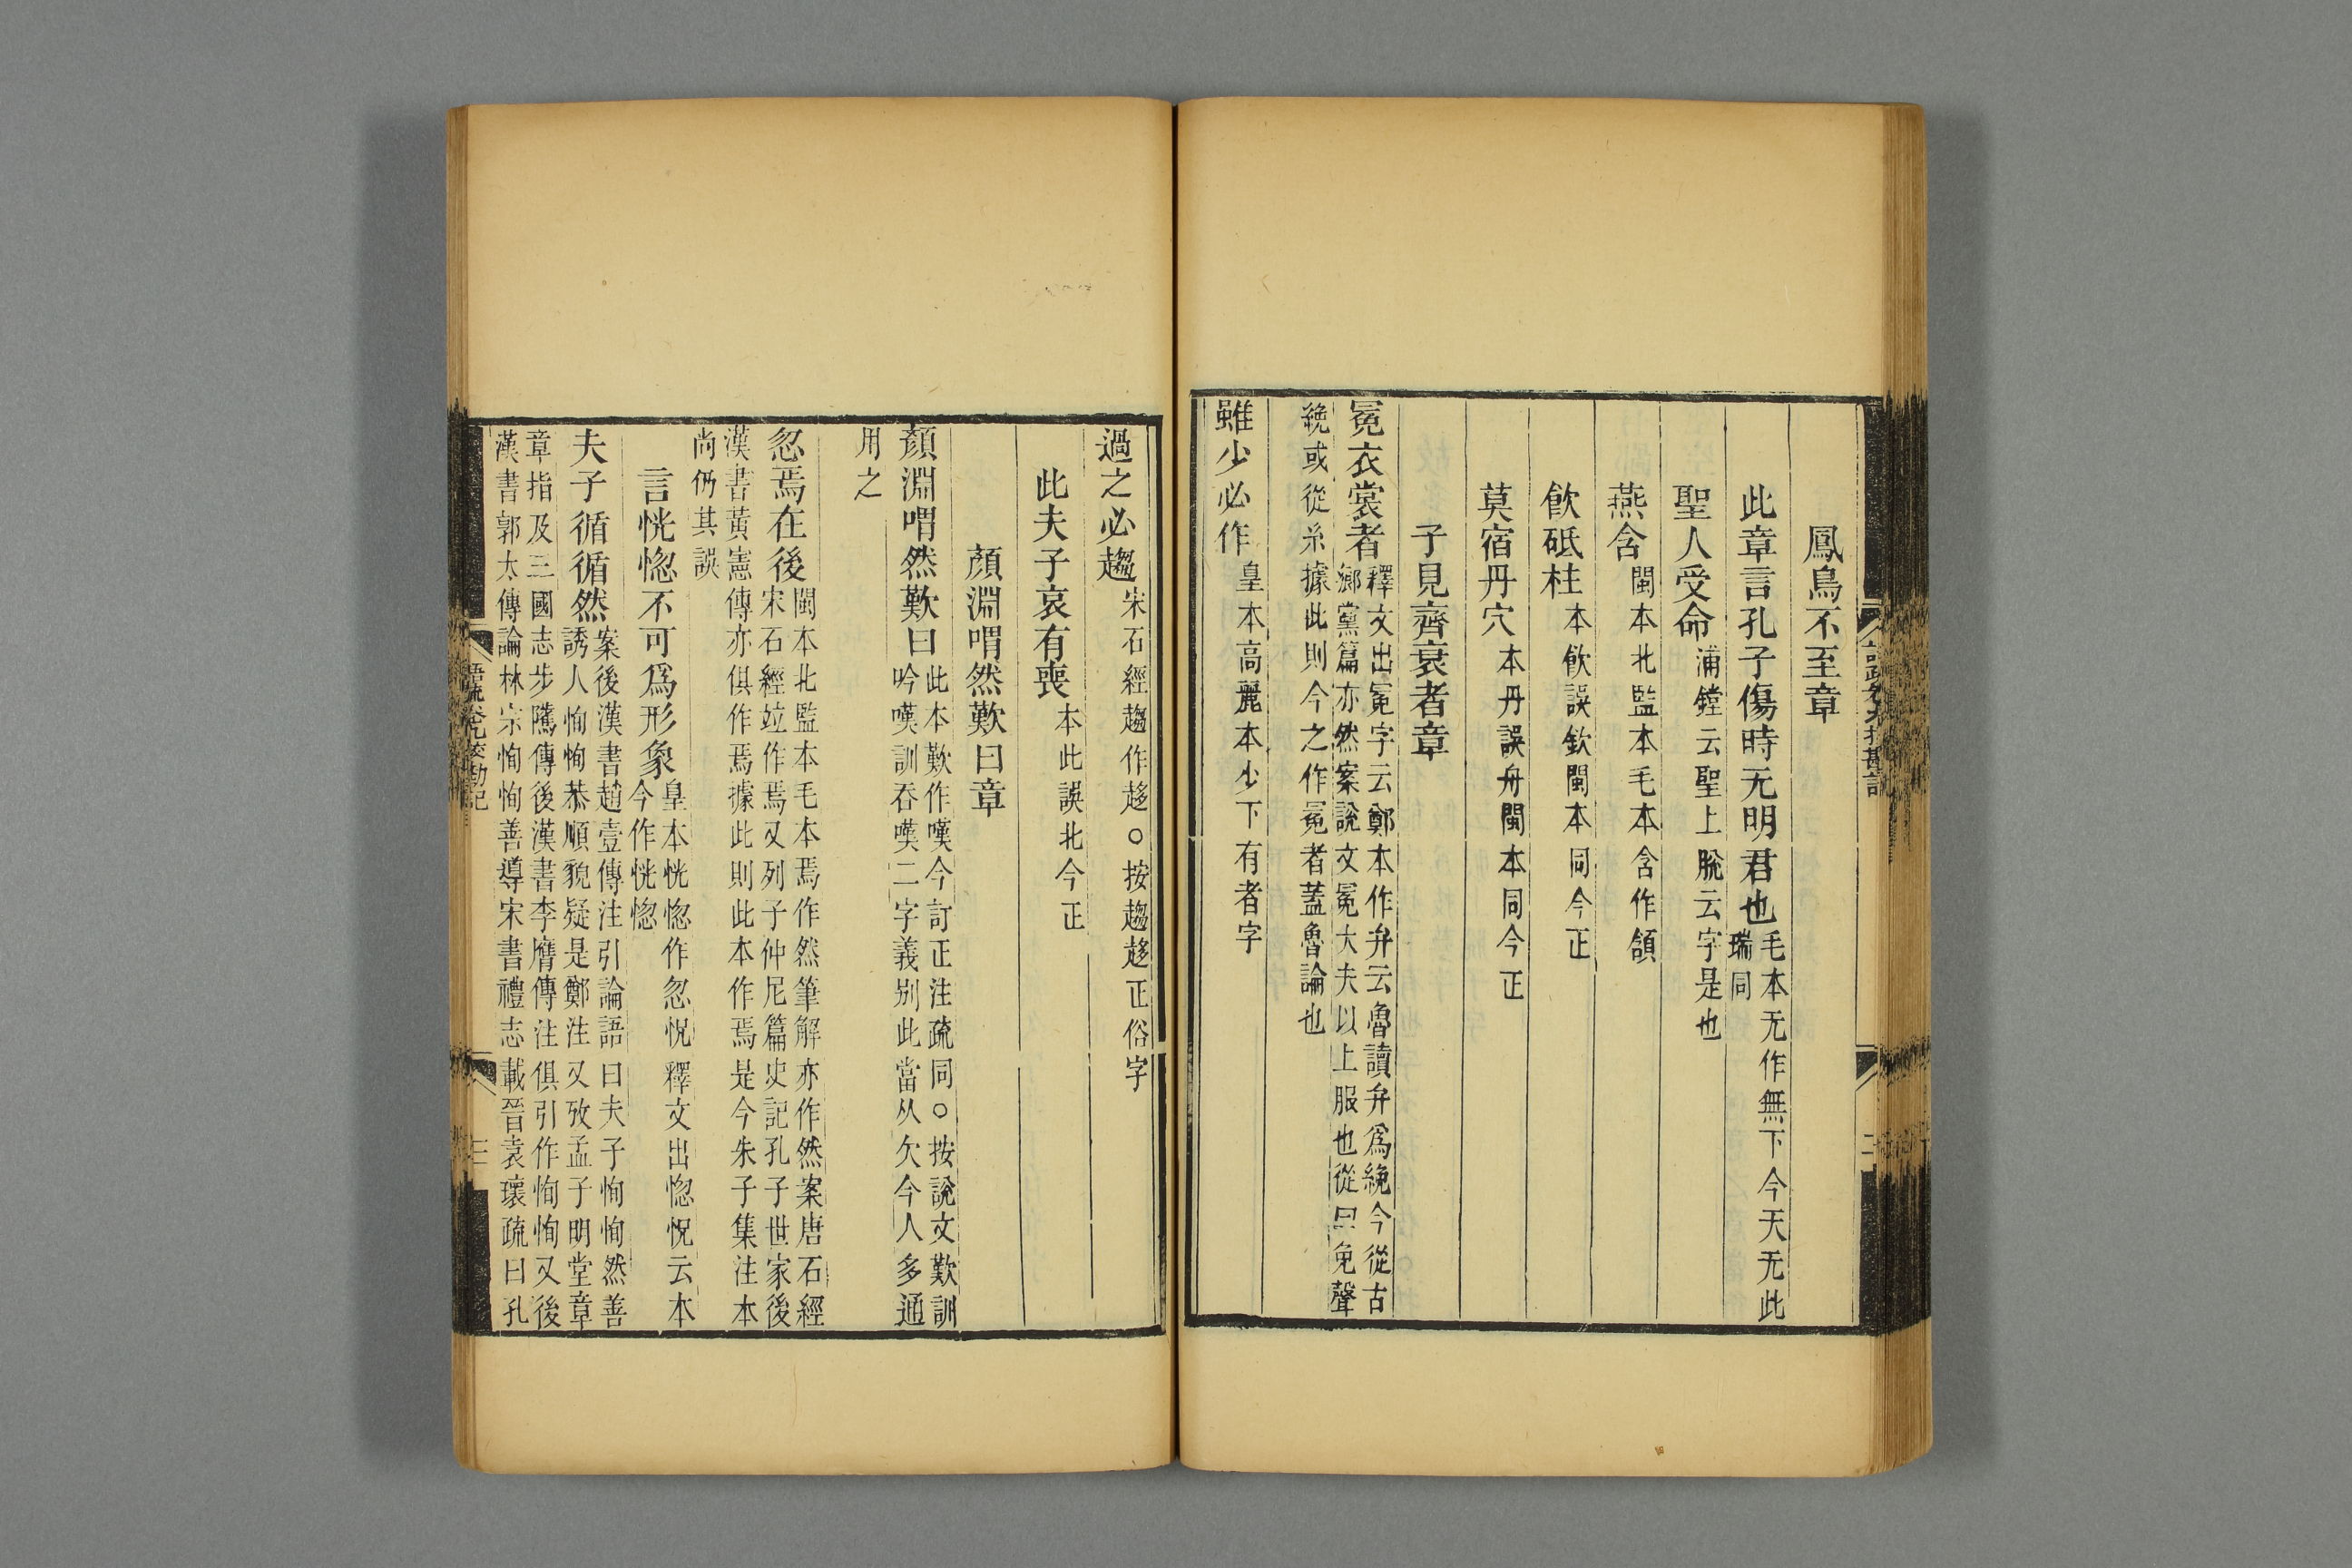 鳳鳥不至章
此章言孔子傷時无明君也毛本无作無下今天无此
瑞同
聖人受命浦鏜云聖上脫云字是也
燕含閩本北監本毛本含作頷
飮砥柱本飮誤欽閩本同今正
莫宿丹穴本丹誤舟閩本同今正
子見齊衰者章
冕衣裳者釋文出冕字云鄭本作弁云魯讀弁爲絻今從古
鄉黨篇亦然案說文冕大夫以上服也從冃免聲
絻或從糸據此則今之作冕者蓋魯論也
雖少必作皇本高麗本少下有者字
過之必趨宋石經趨作趍○按趨趍正俗字
此夫子哀有喪本此誤北今正
顏淵喟然歎曰章
顏淵喟然歎曰此本歎作嘆今訂正注疏同○按說文歎訓
吟嘆訓吞嘆二字義別此當从欠今人多通
用之
忽焉在後閩本北監本毛本焉作然筆解亦作然案唐石經
宋石經竝作焉又列子仲尼篇史記孔子世家後
漢書黃憲傳亦俱作焉據此則此本作焉是今朱子集注本
尚仍其誤
言恍惚不可爲形象皇本恍惚作忽怳釋文出惚怳云本
今作恍惚
夫子循循然案後漢書趙壹傳注引論語曰夫子恂恂然善
誘人恂恂恭順貌疑是鄭注又攷孟子明堂章
章指及三國志步騭傳後漢書李膺傳注俱引作恂恂又後
漢書郭太傳論林宗恂恂善導宋書禮志載晉袁瓌疏曰孔
語疏卷九校勘記